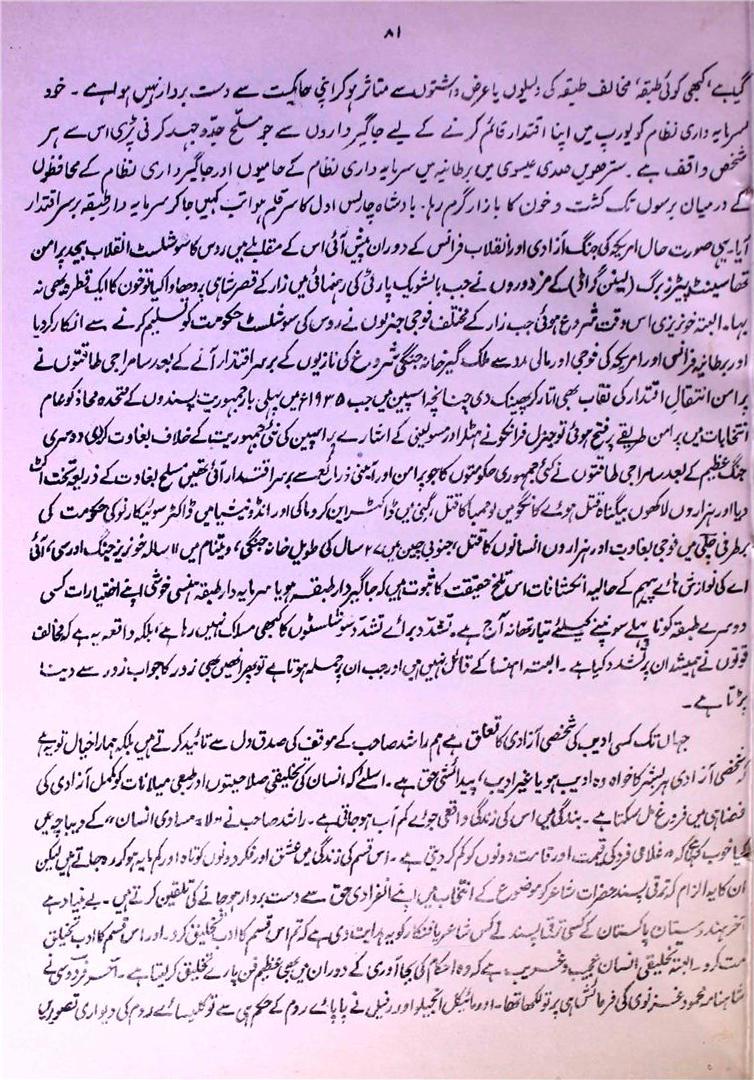 ۸۱
گیا ہے، کبھی کوئی طبقہ، مخالف طبقہ کی دلیلوں یا عرض داشتوں سے متاثر ہو کر اپنی حاکمیت سے دست بردار نہیں ہوا ہے ۔ خود
سرمایہ داری نظام کو یورپ میں اپنا اقتدار قائم کرنے کے لیے جاگیرداروں سے جو مسلح جدوجہد کرنی پڑی اس سے ہر
شخص واقف ہے ۔ سترھویں صدی عیسوی میں برطانیہ میں سرمایہ داری نظام کے حامیوں اور جاگیرداری نظام کے محافظوں
کے درمیان برسوں تک کشت و خون کا بازار گرم رہا۔ بادشاہ چارلس اول کا سر قلم ہوا تب کہیں جا کر سرمایہ دار طبقہ برسراقتدار
آیا۔ یہی صورت حال امریکہ کی جنگ آزادی اور انقلاب فرانس کے دوران پیش آئی اس کے مقابلے میں روس کا سوشلسٹ انقلاب بیحد پرامن
تھا سینٹ پیٹرز برگ (لینن گراڈ) کے مزدوروں نے جب بالشویک پارٹی کی رہنمائی میں زار کے قصر شاہی پر دھاوا کیا تو خون کا ایک قطرہ بھی نہ
بہا۔ البتہ خونریزی اس وقت شروع ہوئی جب زار کے مختلف فوجی جنرلوں نے روس کی سوشلسٹ حکومت کو تسلیم کرنے سے انکار کر دیا
اور برطانیہ فرانس اور امریکہ کی فوجی اور مالی مدد سے ملک گیر خانہ جنگی شروع کی نازیوں کے برسراقتدار آنے کے بعد سامراجی طاقتوں نے
پرامن انتقال اقتدار کی نقاب بھی اتار کر پھینک دی چنانچہ اسپین میں جب ۱۹۳۵ء میں پہلی بار جمہوریت پسندوں کے متحدہ محاذ کو عام
انتخابات میں پرامن طریقے پر فتح ہوئی تو جنرل فرانکو نے ہٹلر اور مسولینی کے اشارے پر اسپین کی نئی جمہوریت کے خلاف بغاوت کر دی دوسری
جنگ عظیم کے بعد سامراجی طاقتوں نے کئی جمہوری حکومتوں کا جو پرامن اور آئینی ذرائع سے برسراقتدار آئی تھیں مسلح بغاوت کے ذریعہ تختہ الٹ
دیا اور ہزاروں لاکھوں بیگناہ قتل ہوئے کانگو میں لوممبا کا قتل، گنی میں ڈاکٹر این کروما کی اور انڈونیشیا میں ڈاکٹر سوئیکارنو کی حکومت کی
برطرفی چلی میں فوجی بغاوت اور ہزاروں انسانوں کا قتل، جنوبی چین میں ۲۷ سال کی طویل خانہ جنگی، ویتنام میں سالہ خونریز جنگ اور سی، آئی
اے کی نوازش ہائے پیہم کے حالیہ انکشافات اس تلخ حقیقت کا ثبوت ہیں کہ جاگیردار طبقہ ہو یا سرمایہ دار طبقہ ہنسی خوشی اپنے اختیارات کسی
دوسرے طبقہ کو نا پہلے سونپنے کیلئے تیار تھا نہ آج ہے۔ تشدد برائے تشدد سوشلسٹوں کا کبھی مسلک نہیں رہا ہے، بلکہ واقعہ یہ ہے کہ مخالف
قوتوں نے ہمیشہ ان پر تشدد کیا ہے ۔ البتہ اہنسا کے قائل نہیں ہیں اور جب ان پر حملہ ہوتا ہے تو پھر انھیں بھی زور کا جواب زور سے دینا
پڑتا ہے ۔
جہاں تک کسی ادیب کی شخصی آزادی کا تعلق ہے ہم راشد صاحب کے موقف کی صدق دل سے تائید کرتے ہیں بلکہ ہمارا خیال تو یہ ہے
کہ شخصی آزادی ہر بشر کا خواہ وہ ادیب ہو یا غیر ادیب، پیدائشی حق ہے ۔ اسلئے کہ انسان کی تخلیقی صلاحیتوں اور طبعی میلانات کو مکمل آزادی کی
فضا ہی میں فروغ مل سکتا ہے ۔ بندگی میں اس کی زندگی واقعی جوئے کم آب ہو جاتی ہے ۔ راشد صاحب نے "لا = مساوی انسان" کے دیباچہ میں
کیا خوب کہا ہے کہ "غلامی فرد کی قیمت اور قامت دونوں کو کم کر دیتی ہے ۔ اس قسم کی زندگی میں عشق اور فکر دونوں کوتاہ اور کم مایہ ہو کر رہ جاتے ہیں لیکن
ان کا یہ الزام کہ ترقی پسند حضرات شاعر کو موضوع کے انتخاب میں اپنے انفرادی حق سے دست بردار ہو جانے کی تلقین کرتے ہیں ۔ بے بنیاد ہے
آخر ہندوستان پاکستان کے کسی ترقی پسند نے کس شاعر یا فنکار کو یہ ہدایت دی ہے کہ تم اس قسم کا ادب تخلیق کرو ۔ اور اس قسم کا ادب تخلیق
مت کرو ۔ البتہ تخلیقی انسان عجیب و غریب ہے کہ وہ احکام کی بجا آوری کے دوران میں بھی عظیم فن پارے تخلیق کر لیتا ہے ۔ آخر فردوسی نے
شاہنامہ محمود غزنوی کی فرمائش ہی پر تو لکھا تھا ۔ اور مائیکل انجیلو اور رفیل نے پاپائے روم کے حکم ہی سے تو کلیسائے روم کی دیواری تصویریں